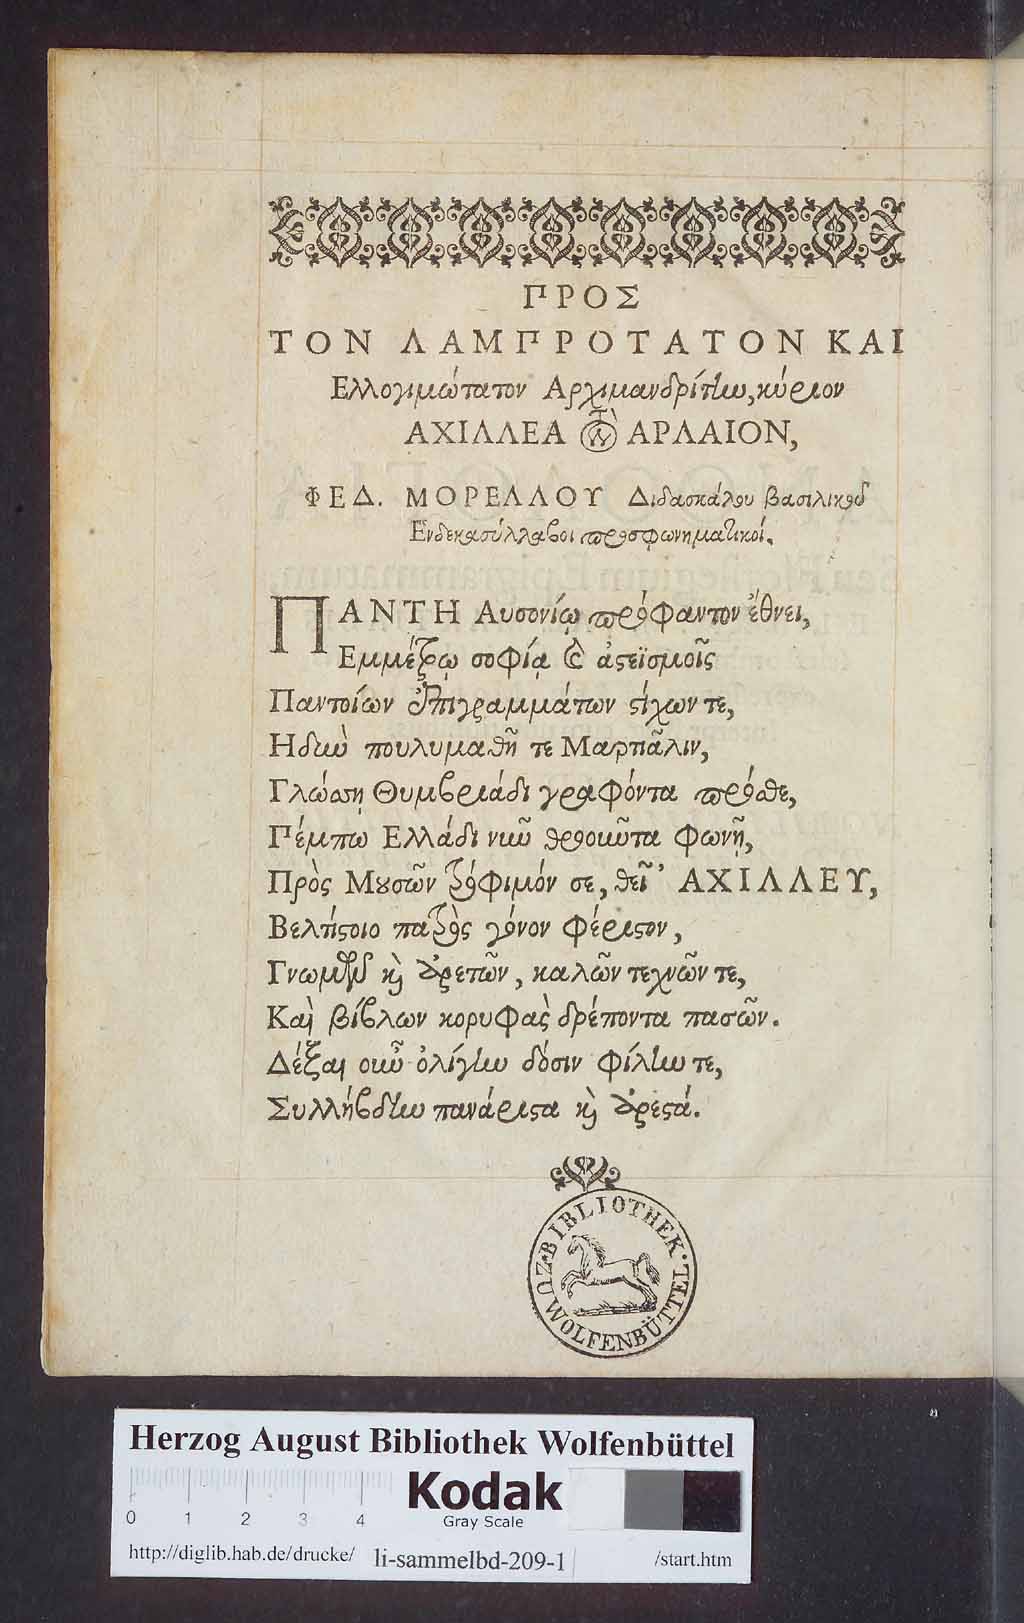 ΠΡΟΣ
ΤΟΝ ΛΑΜΠΡΟΤΑΤΟΝ ΚΑΙ
Ελλογιμώτατον Αρχιμανδρίτην, κύριον
ΑΧΙΛΛΕΑ τὸν ΑΡΛΑΙΟΝ,
ΦΕΔ. ΜΟΡΕΛΛΟΥ Διδασκάλου βασιλικοῦ
Ἑνδεκασύλλαβοι προσφωνηματικοί.
ΠΑΝΤΗ Αυσονίῳ πρόφαντον ἔθνει,
Εμμέτρῳ σοφίᾳ καὶ ἀστεϊσμοῖς
Παντοίων ἐπιγραμμάτων στίχων τε,
Ηδιὼ πουλυμαθῆ τε Μαρπᾶλιν,
Γλώσσῃ Θυμβριάδι γραφόντα πρόσθε,
Πέμπω Ελλάδι νῦν θροοῦντα φωνῇ,
Πρὸς Μουσῶν τρόφιμόν σε, θεῖ' ΑΧΙΛΛΕΥ,
Βελτίστοιο πατρὸς γόνον φέριστον,
Γνωμῶν καὶ ἀρετῶν, καλῶν τεχνῶν τε,
Καὶ βίβλων κορυφὰς δρέποντα πασῶν.
Δέξαι οὖν ὀλίγην δόσιν φίλην τε,
Συλλήβδην πανάριστα καὶ ἀρεστά.
BIBLIOTHEK
ZU WOLFENBÜTTEL
Herzog August Bibliothek Wolfenbüttel
0 1 2 3 4
Kodak
Gray Scale
http://diglib.hab.de/drucke/ li-sammelbd-209-1 /start.htm